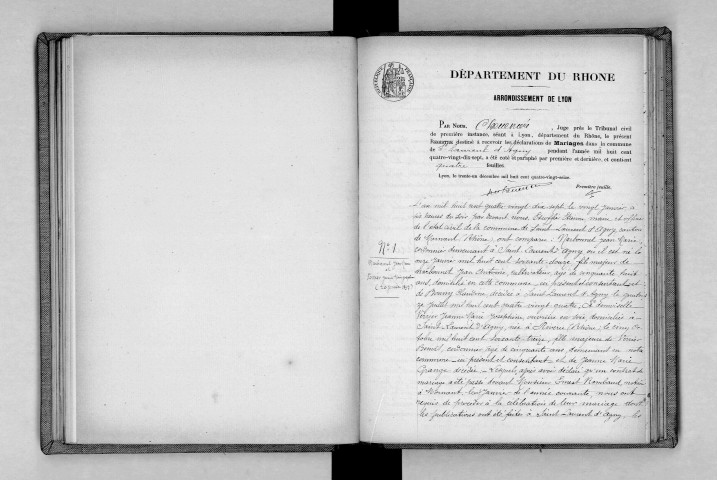 DÉPARTEMENT DU RHONE
ARRONDISSEMENT DE LYON
PAR NOUS, , Juge près le Tribunal civil
de première instance, séant à Lyon, département du Rhône, le présent
REGISTRE destiné à recevoir les déclarations de Mariages dans la commune
de St Laurent d'Agny pendant l'année mil huit cent
quatre-vingt-dix-sept, a été coté et paraphé par première et dernière, et contient
quatre feuilles.
Lyon, le trente-un décembre mil huit cent quatre-vingt-seize.
Première feuille.
N° 1
L'an mil huit cent quatre vingt dix sept le vingt janvier, à
six heures du soir par devant nous, maire et officier
de l'état civil de la commune de Saint-Laurent d'Agny, canton
de Mornant (Rhône), ont comparu : Jean Marie
cordonnier demeurant à Saint Laurent d'Agny où il est né le
onze janvier mil huit cent soixante douze, fils majeur de
Jean Antoine, cultivateur, âgé de cinquante huit
ans, domicilié en cette commune, ici présent et consentant et
de décédée à Saint Laurent d'Agny le
juillet mil huit cent quatre vingt quatre, Et demoiselle
Jeanne Marie Joséphine, ouvrière en soie, domiciliée à
Saint-Laurent d'Agny, née à (Rhône) le cinq
mil huit cent soixante treize, fille majeure de
Benoît, cordonnier, âgé de cinquante ans demeurant en notre
commune ici présent et consentant et de Jeanne Marie
Grange décédée. Lesquels après avoir déclaré qu'un contrat de
mariage a été passé devant Monsieur Ernest notaire
à Mornant, janvier de l'année courante, nous ont
requis de procéder à la célébration de leur mariage dont
les publications ont été faites à Saint-Laurent d'Agny, les